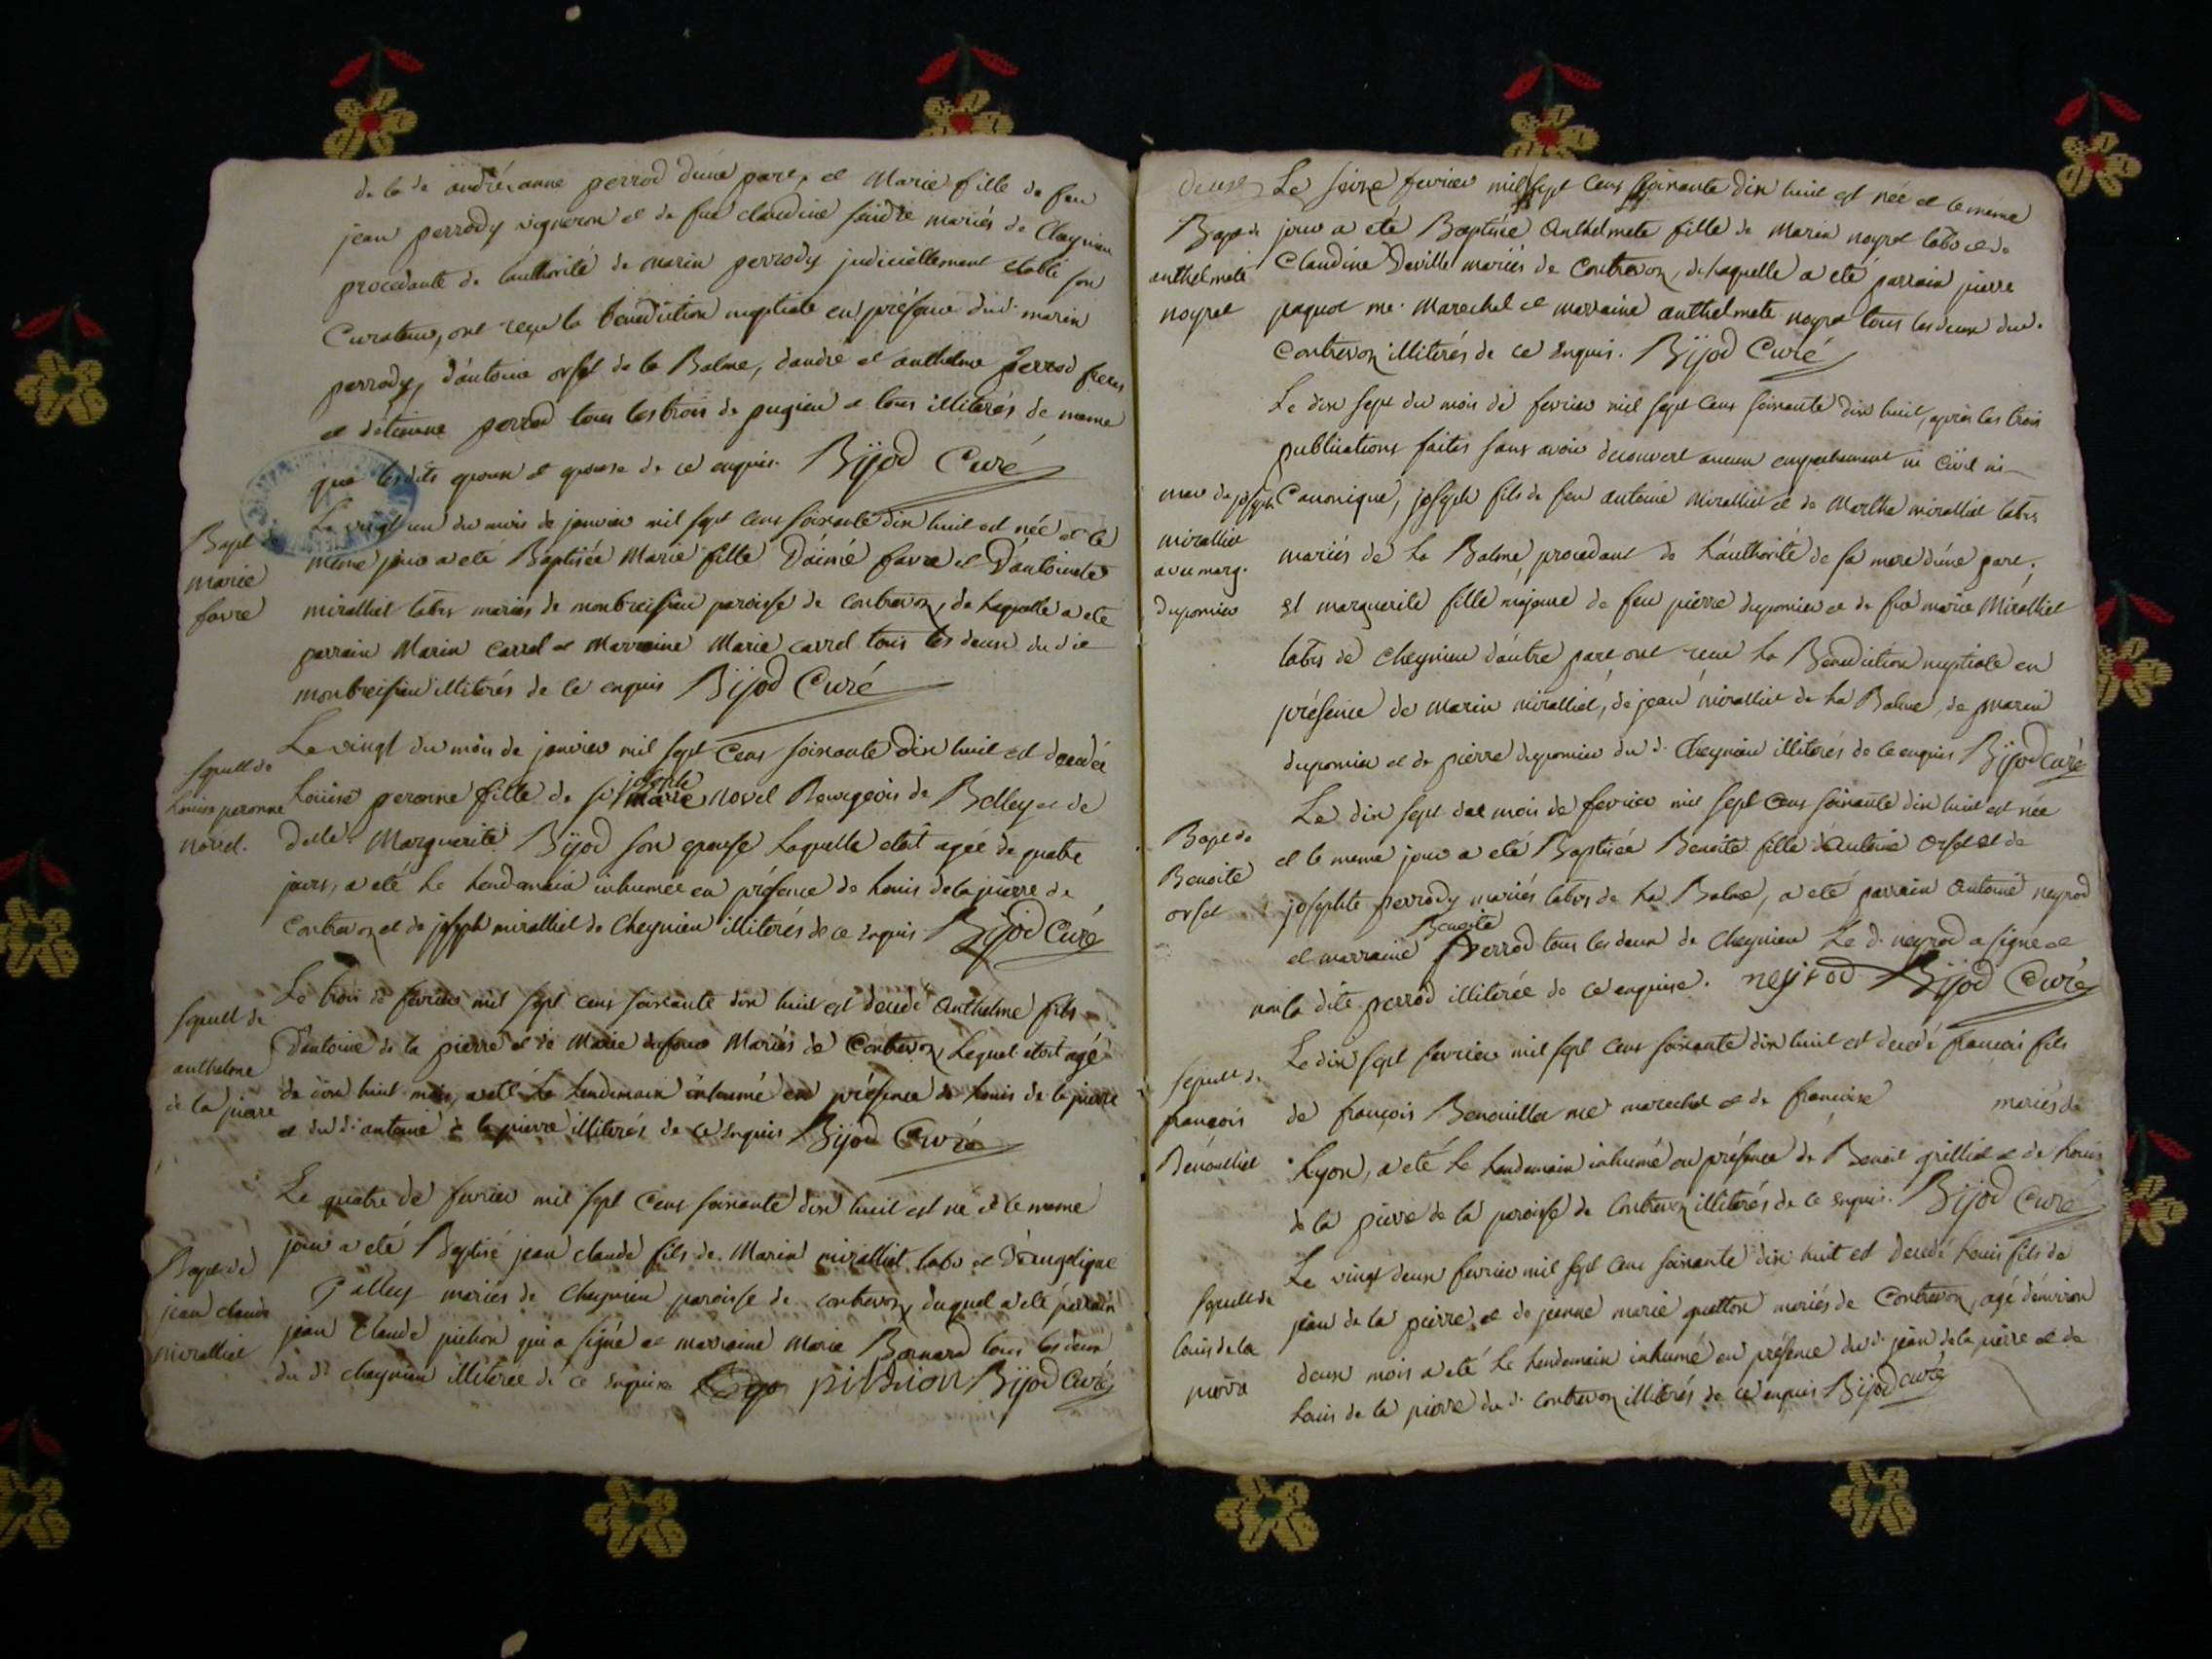 de la de andréanne perrod d'une part, et Marie fille de feu
jean perrody vigneron et de fue claudine mariés de Cheynieu
procedante de l'authorité de marin perrody judiciellement etabli son
Curateur, ont reçu la benediction nuptiale en présence dud. marin
perrody, d'antoine orset de la Balme, d'andré et anthelme perrod freres
et d'etienne perrod tous les trois de pugieu et tous illiterés de meme
que lesdits epoux et epouse de ce enquis. Bijod Curé
Bapt de
marie
favre
Le vingt un du mois de janvier mil sept cens soixante dix huit est née et le
meme jour a eté Baptisée Marie fille d'aimé favre et d'antoinete
miralliet labrs mariés de montbreisieu paroisse de contrevoz, de laquelle a eté
parrain Marin Carrel et Marraine Marie carrel tous les deux du dit
montbreisieu illiterés de ce enquis Bijod Curé
sepult de
Louise peronne
novel.
Le vingt du mois de janvier mil sept Cens soixante dix huit est decedée
Louise peronne fille de sr joseph novel Bourgeois de Belley et de
delle Marguerite Bijod son epouse Laquelle etoit agée de quatre
jours, a eté Le Lendemain inhumée en présence de Louis de la pierre de
Contrevoz et de joseph miralliet de Cheynieu illiterés de ce enquis Bijod Curé
sepult de
anthelme
de la pierre
Le trois de fevrier mil sept cens soixante dix huit est decedé Anthelme fils
d'antoine de la pierre et de Marie dufour Mariés de Contrevoz, Lequel etoit agé
de dix huit mois, a eté Le Lendemain inhumé en présence de Louis de la pierre
et du dt antoine de la pierre illiterés de ce enquis Bijod Curé
Bapt de
jean claude
miralliet
Le quatre de fevrier mil sept Cens soixante dix huit est né et le meme
jour a eté Baptisé jean claude fils de Marin miralliet labr et d'angelique
Galley mariés de Cheynieu paroisse de contrevoz duquel a eté parrain
jean Claude pichon qui a signé et marraine Marie Bornard tous les deux
du dt cheynieu illiterée de ce enquise pichion Bijod Curé
deuse
Bapt de
anthelmete
noyret
Le seize fevrier mil sept cens soixante dix huit est née et le meme
jour a eté Baptisée Anthelmete fille de Marin noyret labr et de
Claudine Deville mariés de Contrevoz, de laquelle a eté parrain pierre
paquot me. Marechal et marraine anthelmete noyret tous les deux dud.
Contrevoz illiterés de ce enquis. Bijod Curé
mar de joseph
miralliet
avec marg.
duponier
Le dix sept du mois de fevrier mil sept cens soixante dix huit, après les trois
publications faites sans avoir decouvert aucun empechement ni Civil ni
Canonique, joseph fils de feu antoine miralliet et de Marthe miralliet labrs
mariés de La Balme procedant de L'authorité de sa mere d'une part.
et marguerite fille majeure de feu pierre duponier et de fue marie Miralliet
labrs de cheynieu d'autre part ont reçu La Benediction nuptiale en
présence de marin miralliet, de jean miralliet de La Balme, de marin
duponier et de pierre duponier du d. Cheynieu illiterés de ce enquis Bijod curé
Bapt de
Benoite
orset
Le dix sept du mois de fevrier mil sept Cens soixante dix huit est née
et le meme jour a eté Baptisée Benoite fille d'Antoine orset et de
josephte perrody mariés labrs de La Balme, a eté parrain Antoine neyrod
et marraine Benoite perrod tous les deux de Cheynieu Le d. neyrod a signé et
non la dite perrod illiterée de ce enquise. neyrod Bijod Curé
sepult de
françois
Benoulliet
Le dix sept fevrier mil sept cens soixante dix huit est decedé françois fils
de françois Benouillet me marechal et de françoise mariés de
Lyon, a eté le Lendemain inhumé en présence de Benoit grilliet et de Louis
de la pierre de la paroisse de Contrevoz illiterés de ce enquis. Bijod Curé
sepult de
louis de la
pierre
Le vingt deux fevrier mil sept cens soixante dix huit est decedé Louis fils de
jean de la pierre et de jeanne marie guetton mariés de Contrevoz, agé d'environ
deux mois a eté Le Lendemain inhumé en présence du d. jean de la pierre et de
Louis de la pierre du d. contrevoz illiterés de ce enquis Bijod curé